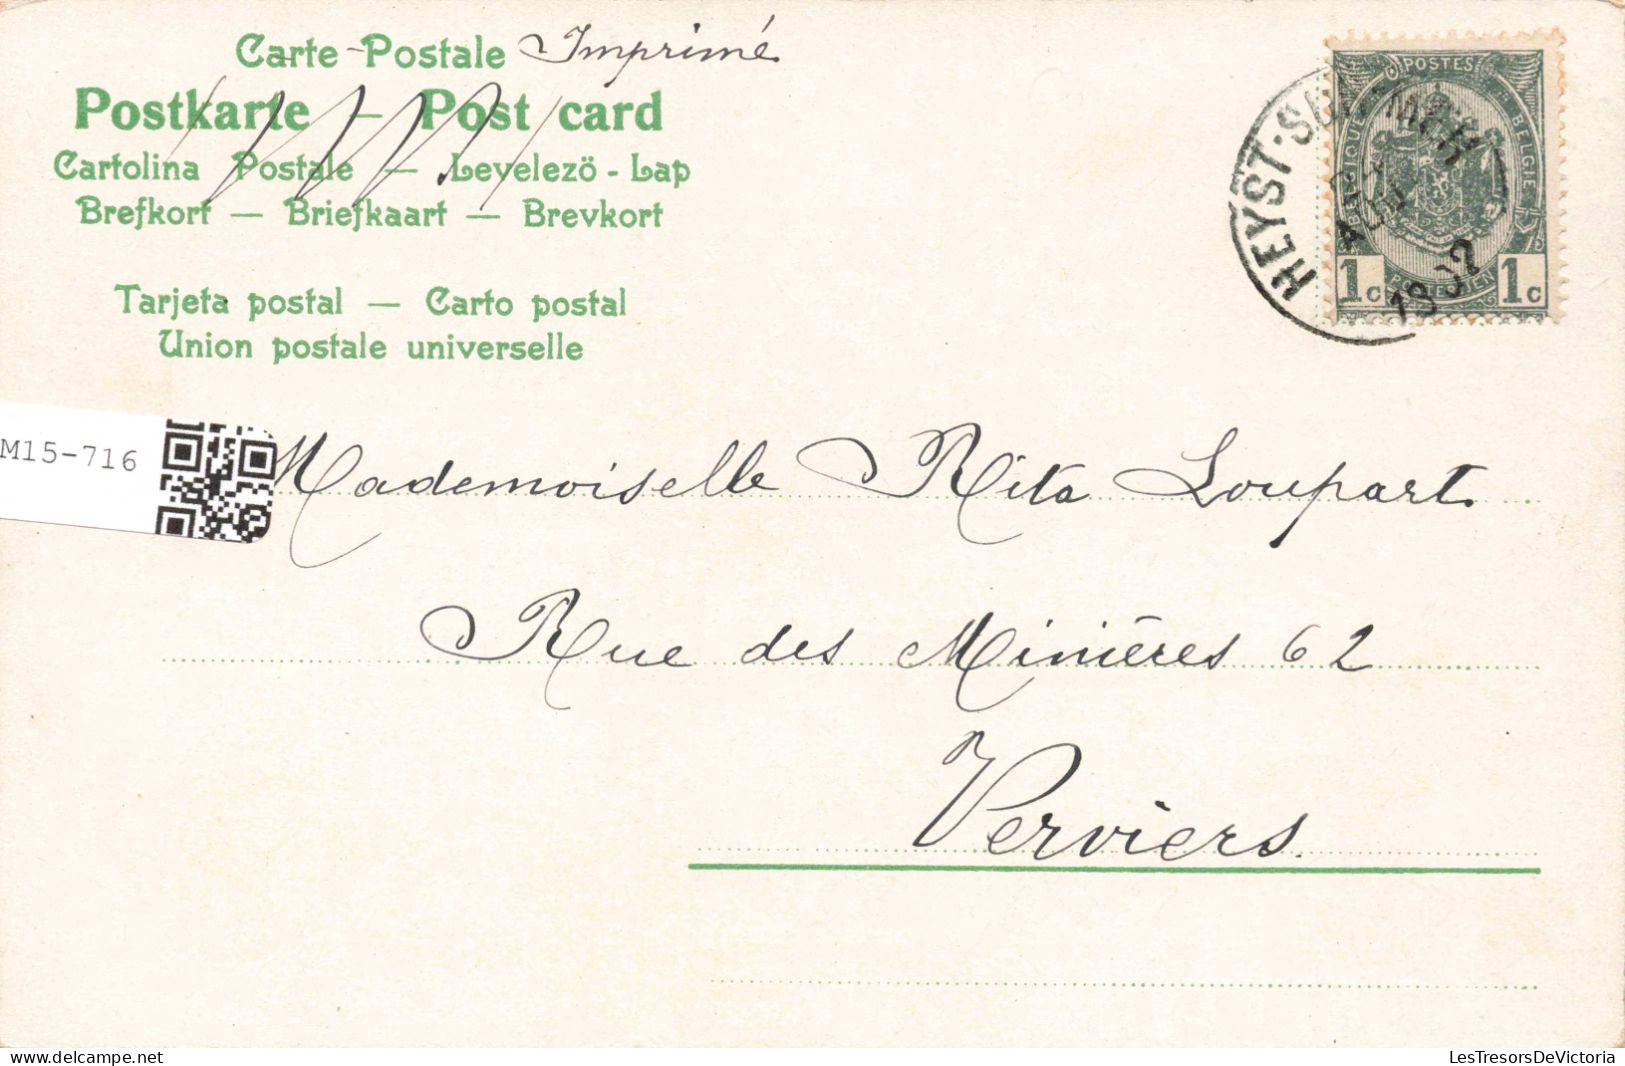 Carte-Postale Imprimé
Postkarte — Post card
Cartolina Postale — Levelezö - Lap
Brefkort — Briefkaart — Brevkort
Tarjeta postal — Carto postal
Union postale universelle
POSTES
HEYST-SUR-MER
1907
1c 1c
M15-716
Mademoiselle Rita Loupart.
Rue des Minières 62
Verviers.
delcampe.net
LesTresorsDeVictoria